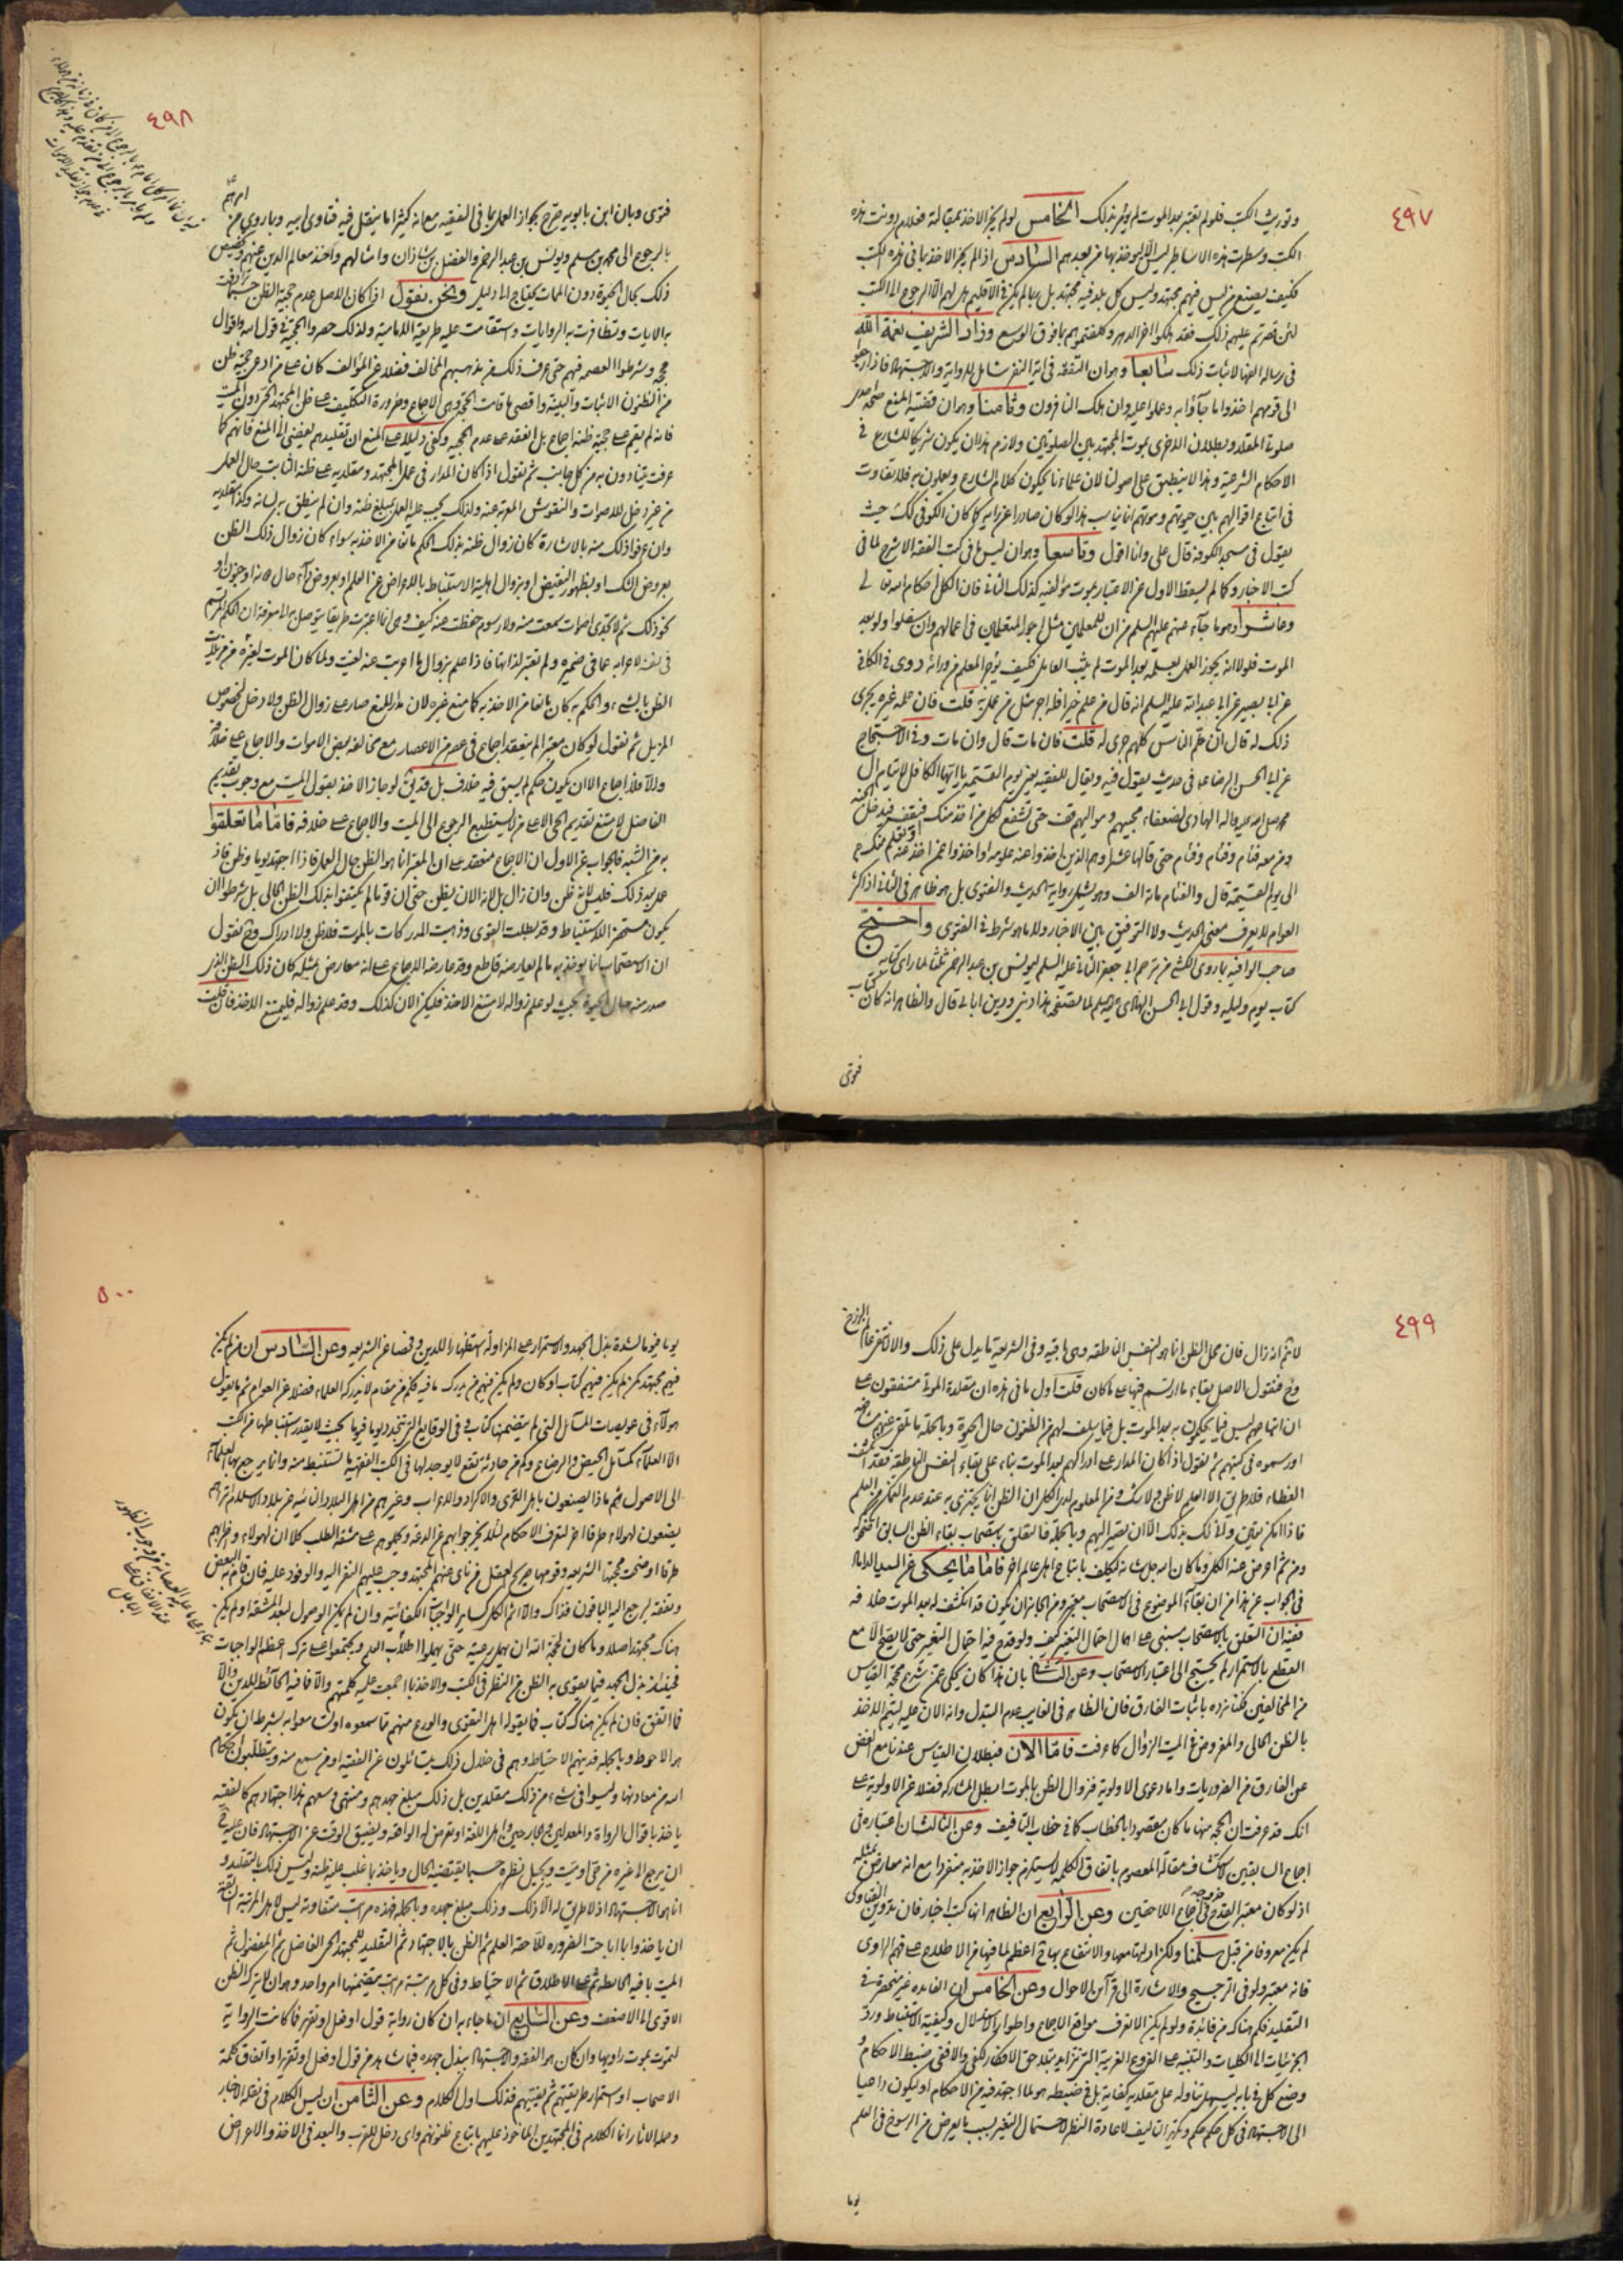 ٤٩٧
وتوريث الكتب فلو لم تعتبر بعد الموت لم يؤثر بذلك الخامس لو لم يجز الاخذ بمقالته فلام دونت هذه
الكتب وسطرت هذه الاساطير ليس الا ليوخذ بها من بعدهم السادس اذا لم يجز الاخذ بما في هذه الكتب
فكيف يصنع من ليس فيهم مجتهد وليس كل بلد فيه مجتهد بل ربما لم يكن في الاقليم هل لهم الا الرجوع الى الكتب
لئن قصرتم عليهم ذلك فقد هلكوا اخر الدهر وكلفتموهم بما فوق الوسع وزاد الشريف نعمة الله
في رسالة الفها لاثبات ذلك سابعا وهو ان التفقه في اية النفر شامل للرواية والاجتهاد فاذا رجعوا
الى قومهم اخذوا ما جاؤا به وعملوا عليه وان هلك النافرون وثامنا وهو ان قضية المنع صحة احدى
صلوتي المقلد وبطلان الاخرى بموت المجتهد بين الصلوتين ولازم هذا ان يكون شريكا للشارع في
الاحكام الشرعية وهذا لا ينطبق على اصولنا لان علماءنا يحكون كلام الشارع ويعملون به فلا تفاوت
في اتباع اقوالهم بين حيوتهم وموتهم انما يناسب هذا لو كان صادرا عن رايه كما كان الكوفي لك حيث
يقول في مسجد الكوفة قال علي وانا اقول وتاسعا وهو ان ليس ما في كتب الفقه الا شرح لما في
كتب الاخبار وكما لم يسقط الاول عن الاعتبار بموت مؤلفيه كذلك الثاني فان الكل احكام الله تعالى
وعاشرا وهو ما جاء عنهم عليهم السلم من ان للمعلمين مثل اجور المتعلمين في اعمالهم وان سفلوا ولو بعد
الموت فلولا انه يجوز العمل بعلمه بعد الموت لم يثب العامل فكيف يؤجر المعلم من ورائه روى في الكافي
عن ابي بصير عن ابي عبد الله عليه السلم انه قال من علم خيرا فله اجر مثل من عمل به قلت فان علمه غيره يجري
ذلك له قال ان علم الناس كلهم جرى له قلت فان مات قال وان مات وفي الاحتجاج
عن ابي الحسن الرضا عه في حديث يقول فيه ويقال للفقيه يعني يوم القيمة يا ايها الكافل لايتام ال
محمد صلى الله عليه واله الهادي لضعفاء محبيهم ومواليهم قف حتى تشفع لكل من اخذ منك فيقف فيدخل الجنة
ومن معه فئام وفئام وفئام حتى قالها عشرا وهم الذين اخذوا عنه علومه او اخذوا عمن اخذ عنه
الى يوم القيمة قال والفئام مائة الف وهو يشمل رواية الحديث والفتوى بل هو ظاهر في الثاني اذ اكثر
العوام لا يعرف معنى الحديث ولا التوفيق بين الاخبار ولا ما هو شرط في الفتوى واحتج
صاحب الوافية بما روى الكشي من ترحم ابي جعفر الثاني عليه السلم ليونس بن عبد الرحمن ثلثا لما راى كتابه
كتاب يوم وليلة وقول ابي الحسن الهادي عليه السلم لما تصفحه هذا ديني ودين ابائي قال والظاهر انه كان كتاب
فتوى
٤٩٨
فتوى وبان ابن بابويه صرح بجواز العمل بما في الفقيه مع انه كثيرا ما ينقل فيه فتاوى ابيه وبما روي من امرهم
بالرجوع الى محمد بن مسلم ويونس بن عبد الرحمن والفضل بن شاذان وامثالهم واخذ معالم الدين عنهم وتخصيص
ذلك بحال الحيوة دون الممات يحتاج الى دليل ونحن نقول اذا كان الاصل عدم حجية الظن حسبما نطقت
به الايات وتظافرت به الروايات واستقامت عليه طريقة الامامية ولذلك حصروا الحجية في قول الله واقوال
حججه وشرطوا العصمة فيهم حتى عرف ذلك من مذهبهم المخالف فضلا عن المؤالف كان على من ادعى حجية ظن
من الظنون الاثبات والبينة واقصى ما قامت الحجة وهي الاجماع وضرورة التكليف على ظن المجتهد الحي دون الميت
فانه لم يقم على حجية ظنه اجماع بل انعقد على عدم الحجية وكفى دليلا على المنع ان تقليدهم يفضي الى المنع فانهم كما
عرفت ينادون به من كل جانب ثم نقول اذا كان المدار في عمل المجتهد ومقلديه على ظنه الثابت حال العمل
من غير دخل للاصوات والنقوش المعربة عنه ولذلك يجب عليه العمل بمبلغ ظنه وان لم ينطق به لسانه وكذا مقلديه
وان عرفوا ذلك منه بالاشارة كان زوال ظنه بذلك الحكم مانعا من الاخذ به سواء كان زوال ذلك الظن
بعروض الشك او بظهور النقيض او بزوال اهلية الاستنباط بالاعراض عن العلم او بعروض داء حال دونه او جنون او
نحو ذلك ثم لا تجدي اصوات سمعت منه ولا رسوم حفظت عنه كيف وهي انما اعتبرت طريقا يتوصل به الى معرفة ان الحكم المرتسم
في نفسه لاعرابه عما في ضميره ولم تعتبر لذاتها فاذا علم بزوال ما اعربت عنه لغت ولما كان الموت لغيره من مزيلات
الظن بالشيء والحكم به كان مانعا من الاخذ به كما منع غيره لان مدار المنع صار على زوال الظن ولا دخل لخصوص
المزيل ثم نقول لو كان معتبرا لم ينعقد اجماع في عصر من الاعصار مع مخالفة بعض الاموات والاجماع على خلافه
والا فلا اجماع الا ان يكون حكم لم يسبق فيه خلاف بل قد يق لو جاز الاخذ بقول الميت مع وجوب تقديم
الفاضل لامتنع تقديم الحي الا على من لا يستطيع الرجوع الى الميت والاجماع على خلافه فاما ما تعلقوا
به من الشبه فالجواب عن الاول ان الاجماع منعقد على ان المعتبر انما هو الظن حال العمل فاذا اجتهد يوما وظن
بعد ذلك فليس لانه ظن وان زال بل لانه الان يظن حتى ان قوما لم يكتفوا بذلك الظن الحالي بل شرطوا ان
يكون مستحضرا للاستنباط وقد بطلت القوى وذهبت المدركات بالموت فلا ظن ولا ادراك وح نقول
ان الاستصحاب انما يؤخذ به ما لم يعارضه قاطع وقد عارضه الاجماع على انه معارض بمثله كان ذلك الظن الذي
صدر منه حال الحيوة بحيث لو علم زواله لامتنع الاخذ فليكن الان كذلك وقد علم زواله فليمتنع الاخذ فان قلت
٤٩٩
لا نم انه زال فان محل الظن انما هو النفس الناطقة وهي باقية وفي الشريعة ما يدل على ذلك والا لانتفى عالم البرزخ
وح فنقول الاصل بقاء ما ارتسم فيها على ما كان قلت اول ما في هذه ان مقلدة الموتى متفقون على
ان اتباعهم ليس فيما يحكمون به بعد الموت بل فيما سلف لهم من الظنون حال الحيوة وبالجملة ما تلقى عنهم
او رسموه في كتبهم ثم نقول اذا كان المدار على ادراكهم بعد الموت بناء على بقاء النفس الناطقة فقد انكشف
الغطاء فلا طريق الا العلم لا ظن ولا شك ومن المعلوم لدى الكل ان الظن انما يجتزى به عند عدم التمكن من العلم
فاذا امكن تعين ولا لك بذلك الا ان تصير اليهم وبالجملة فالتعلق باستصحاب بقاء الظن السابق
ومن ثم اعرض عنه الكل وما كان الله جل شانه ليكلف باتباع اهل عالم اخر فاما ما يحكى عن السيد الداماد
في الجواب عن هذا من ان بقاء الموضوع في الاستصحاب معتبر ومن الجائز ان يكون قد انكشف له بعد الموت خلافه
ففيه ان التعلق بالاستصحاب مبني على اهمال احتمال التغير كيف ولو قدح فيه احتمال التغير حتى لا يصح الا مع
القطع بالاستمرار لم يحتج الى اعتبار الاستصحاب وعن الثاني بان هذا كان يحكى عمن شرع محجة القياس
من المخالفين لكنا نرده باثبات الفارق فان الظاهر في الغايب عدم التبدل وانه الان عليه ليتم الاخذ
بالظن الحالي والمفروض في الميت الزوال كما عرفت فاما الان فبطلان القياس عندنا مع الغض
عن الفارق من الضروريات واما دعوى الاولوية فزوال الظن بالموت ابطل المشاركة فضلا عن الاولوية على
انك قد عرفت ان الحجة منها ما كان مقصودا بالخطاب كما في خطاب التافيف وعن الثالث ان اعتباره في
اجماع السابقين لاستكشاف مقالة المعصوم باتفاق الكلمة لا يستلزم جواز الاخذ به منفردا مع انه معارض بمثله
اذ لو كان معتبرا لقدح خروجه في اجماع اللاحقين وعن الرابع ان الظاهر انها كتب اخبار فان تدوين الفتاوى
لم يكن معروفا من قبل سلمنا ولكن ادلتها معها والانتفاع بها في اعظم لما فيها من الاطلاع على فهم الراوي
فانه معتبر ولو في الترجيح والاشارة الى قرائن الاحوال وعن الخامس ان الفائدة غير منحصرة في
التقليد فكم هناك من فائدة ولو لم يكن الا تعرف مواقع الاجماع واطوار الاستدلال وكيفية الاستنباط ورد
الجزئيات الى الكليات والتنبيه على الفروع الغريبة التي تزايد بتلاحق الافكار لكفى والافتى ضبط الاحكام و
وضع كل في بابه ليسهل تناوله على مقلديه كفاية بل في ضبطه هو لما اجتهد فيه من الاحكام او ليكون داعيا
الى الاجتهاد في كل حكم حكم لاعادة النظر لاحتمال التغير بسبب ما يعرض من الرسوخ في العلم
يوما
٥٠٠
يوما فيوما لشدة بذل الجهد والاستمرار على المزاولة استظهارا للدين وفحصا عن الشريعة وعن السادس ان من لم يكن
فيهم مجتهد لم يكن فيهم كتاب او كان ولم يكن فيهم من يدرك ما فيه فكم من مقام لا يدركه العلماء فضلا عن العوام ثم ما يقول
هولاء في عويصات المسائل التي لم يتضمنها كتاب وفي الوقايع التي تتجدد يوما فيوما بحيث لا يقدر استنباطها من الكتب
الا العلماء كمسائل الحيض والرضاع وكم من حادثة تقع لا يوجد لها في الكتب الفقهية ما تستنبط منه وانما يرجع بها العلماء
الى الاصول ثم ماذا يصنعون باهل القرى والاكراد والاعراب وغيرهم من اهل البلدان النائية عن بلاد الاسلام تراهم
يضعون لهولاء طرقا اخر لتعرف الاحكام لئلا يخرجوا بهم عن الدعة ويحملوهم على مشقة الطلب كلا ان لهولاء وغيرهم
طرقا اوضحت محجتها الشريعة وقومها صريح العقل فمن ناى عنهم المجتهد وجب عليهم النفر اليه والوفود عليه فان قام به البعض
وتفقه ليرجع اليه الباقون فذاك والا اثم الكل كساير الواجبات الكفائية وان لم يكن الوصول لبعد المشقة او لم يكن
هناك مجتهد اصلا وما كان لحجة الله ان يهمل رعيته حتى يهملوا طلاب العلم ويجتمعوا على ترك اعظم الواجبات
فحينئذ بذل الجهد فيما يقوى به الظن من النظر في الكتب والاخذ بما اجمعت عليه كلمتهم والا فما فيه الحائطة للدين والا
فما اتفق فان لم يكن هناك كتاب فما يقوله اهل التقوى والورع منهم مما سمعوه او استمعوا به بشرط ان يكون
هو الاحوط وبالجملة فدينهم الاحتياط وهم في خلال ذلك يتسائلون عن الفقيه او من سمع منه ويتطلبون احكام
الله من معادنها وليسوا في شيء من ذلك مقلدين بل ذلك مبلغ جهدهم ومنتهى وسعهم هذا اجتهادهم كالفقيه
ياخذ باقوال الرواة والمعدلين والجارحين واهل اللغة او تعرض له الواقعة ويضيق الوقت عن الاجتهاد فان عليه ح
ان يرجع الى غيره من حي او ميت ويجيل نظره حسبما يقتضيه الحال وياخذ بما غلب عليه ظنه وليس ذلك بالتقليد و
انما هو الاجتهاد اذ لا طريق له الا ذلك وذلك مبلغ جهده وبالجملة فهذه مراتب متفاوتة ليس لاهل المرتبة
ان ياخذوا بما اباحت الضرورة للاحقة العلم ثم الظن بالاجتهاد ثم التقليد للمجتهد الحي الفاضل ثم المفضول ثم
الميت بما فيه الحائطة ثم على الاطلاق ثم الاحتياط وفي كل مرتبة مراتب يتضمنها امر واحد وهو ان لا يترك الظن
الاقوى الى الاضعف وعن السابع ان ما جاء به ان كان رواية قول او فعل او تقرير فما كانت الرواية
لتموت بموت راويها وان كان هو الفقه والاجتهاد ببذل جهده فيما شاهد من قول او فعل او تقرير او اتفاق كلمة
الاصحاب او استمرار طريقتهم ثم يفتيهم فذلك اول الكلام وعن الثامن ان ليس الكلام في نقلة الاخبار
وحملة الاثار انما الكلام في المجتهدين الماخوذ عليهم باتباع ظنونهم واي دخل للقرب والبعد في الاخذ والاعراض